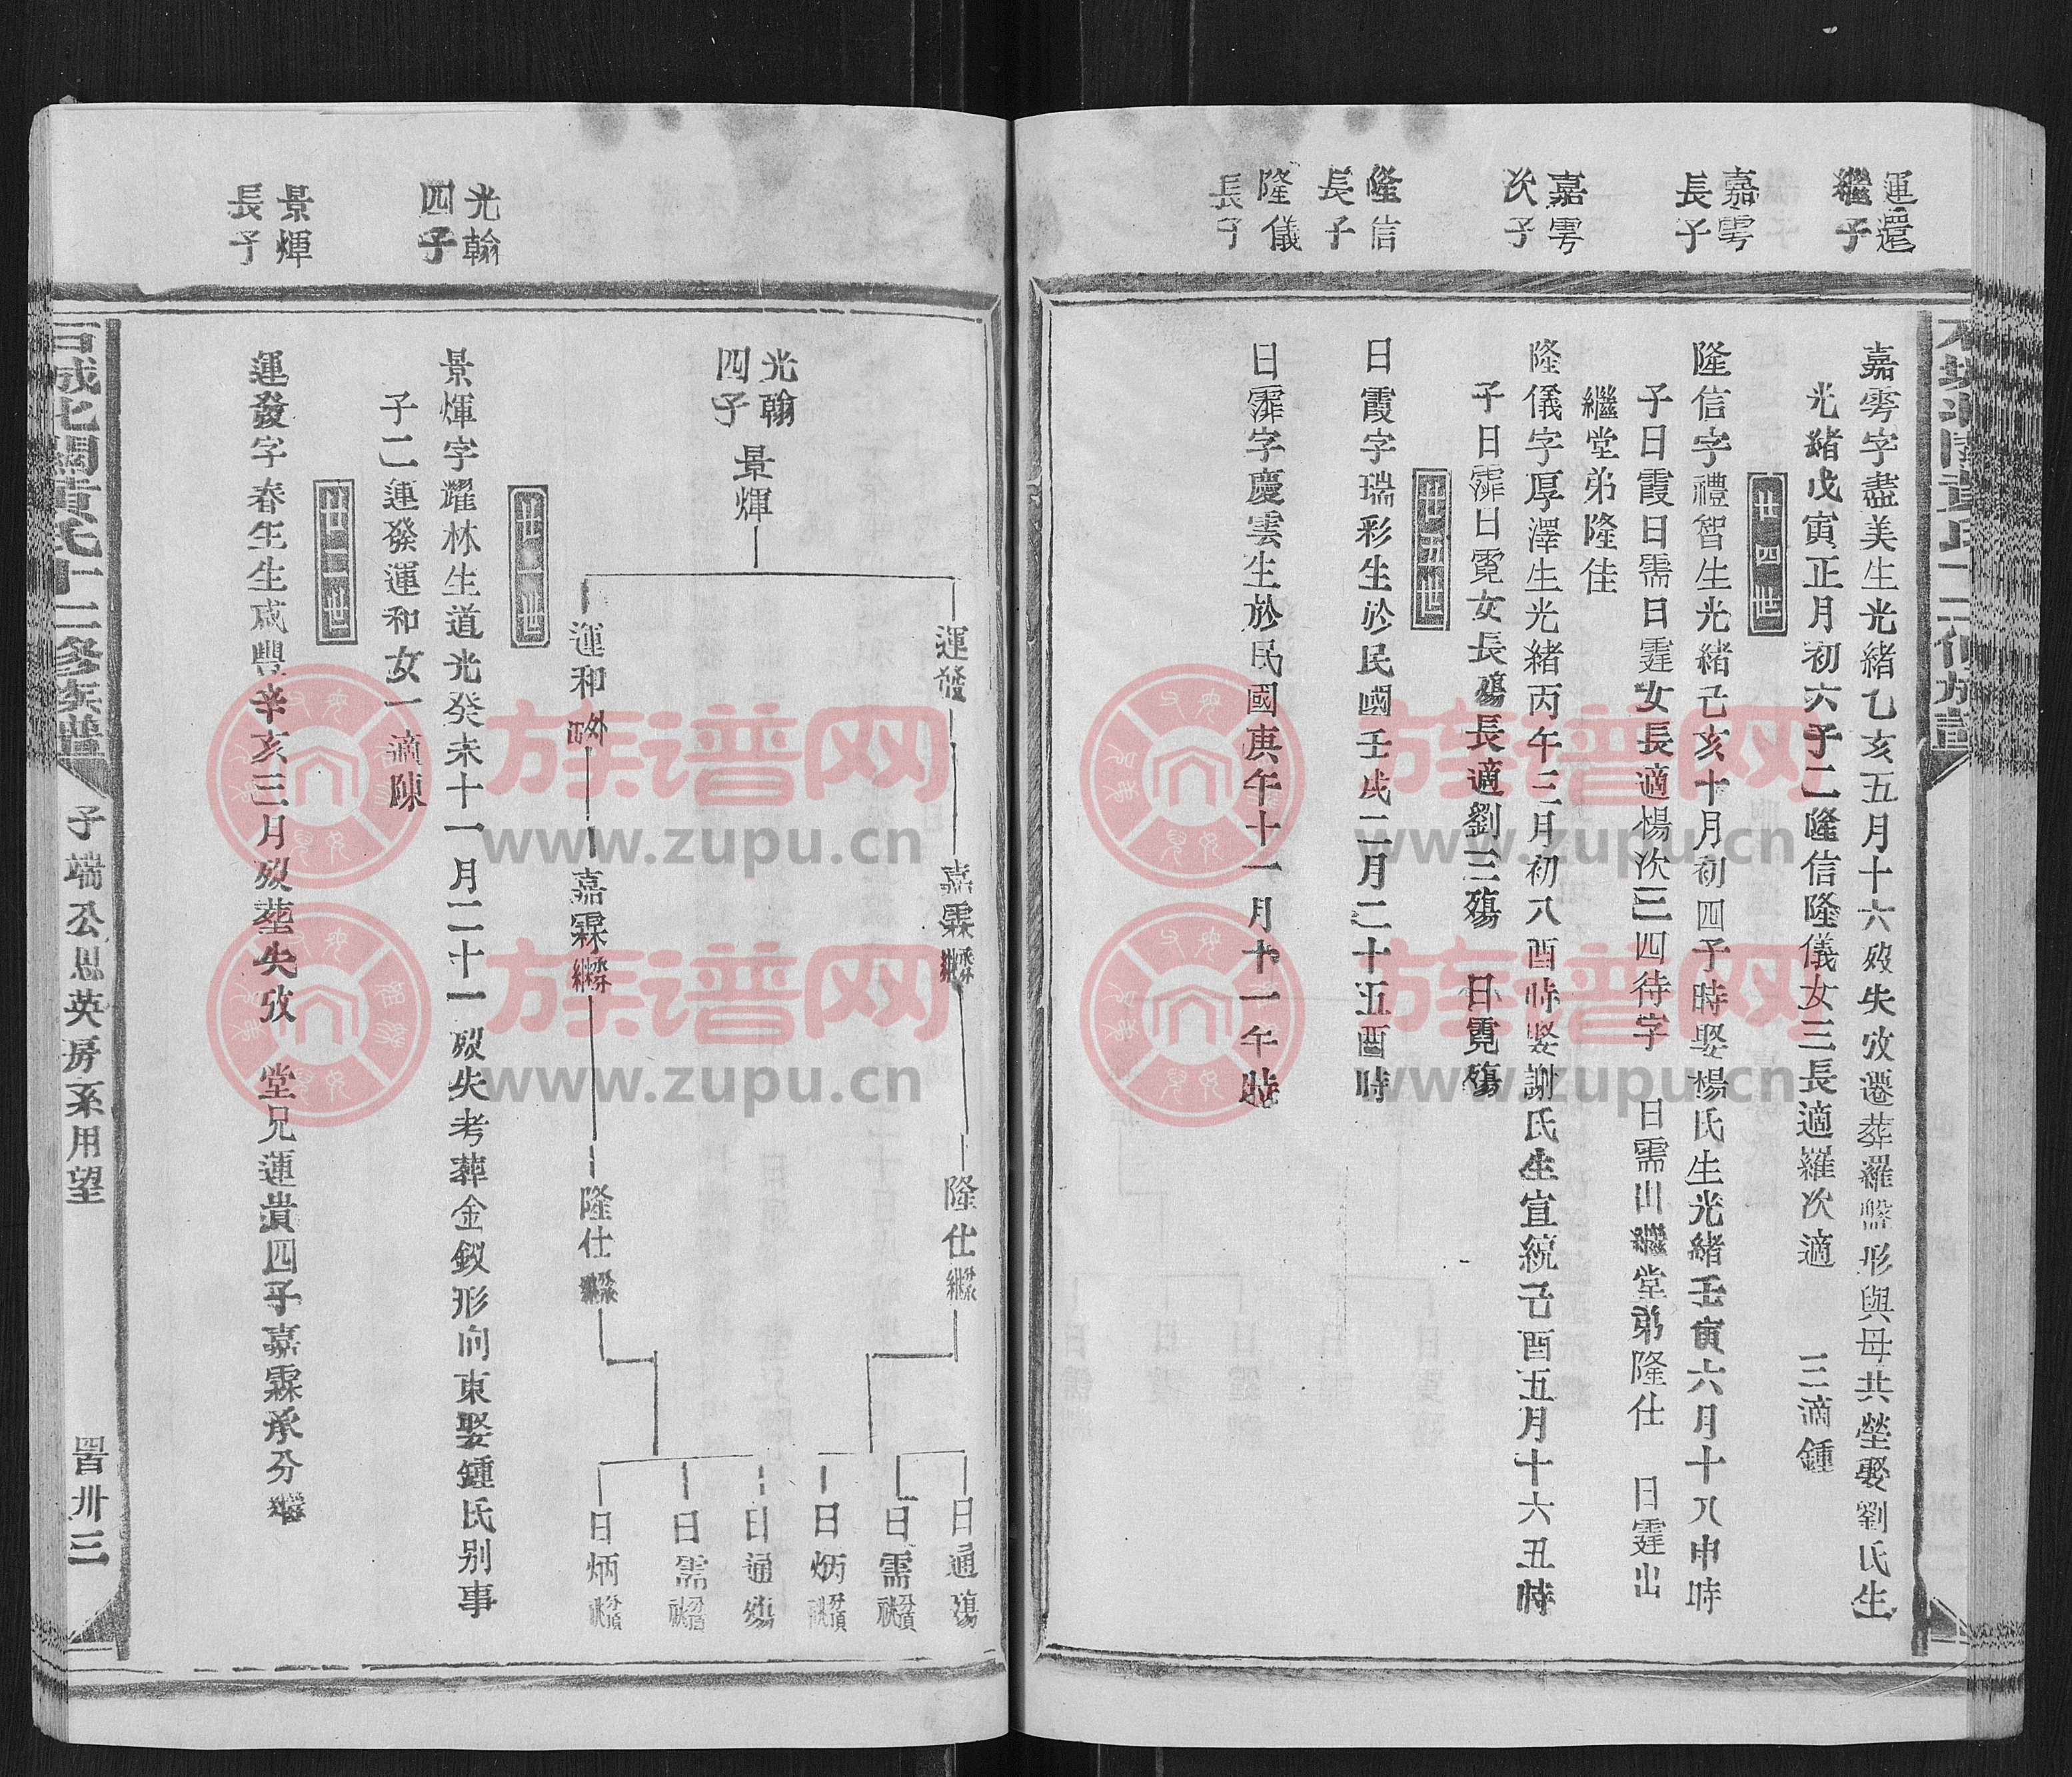 運還
繼子
嘉雩字盡美生光緒乙亥五月十六歿失攷遷葬羅盤形與母共塋娶劉氏生
光緒戊寅正月初六子二隆信隆儀女三長適羅次適 三適鍾
廿四世
嘉雩
長子
隆信字禮智生光緒己亥十月初四子時娶楊氏生光緒壬寅六月十八申時
子日霞日需日霆女長適楊次三四待字 日需出繼堂弟隆仕 日霆出
繼堂弟隆佳
嘉雩
次子
隆儀字厚澤生光緒丙午三月初八酉時娶謝氏生宣統己酉五月十六丑時
子日霏日霓女長殤長適劉三殤 日霓殤
廿五世
隆信
長子
日霞字瑞彩生於民國壬戌二月二十五酉時
隆儀
長子
日霏字慶雲生於民國庚午十一月十一午時
光翰
四子
景煇
運發
嘉霖
隆仕
日通殤
日需
日炳
運和
嘉霖
隆仕
日通殤
日需
日炳
廿一世
光翰
四子
景煇字耀林生道光癸未十一月二十一歿失考葬金釵形向東娶鍾氏別事
子二運發運和女一適陳
廿二世
景煇
長子
運發字春生生咸豐辛亥三月歿葬失攷 堂兄運貴四子嘉霖承分繼
石城北關黃氏十二修族譜
子端公思英房系用望
卅三
族谱网
www.zupu.cn
族谱网
www.zupu.cn
族谱网
www.zupu.cn
族谱网
www.zupu.cn